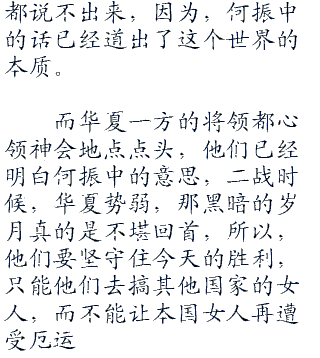 都说不出来，因为，何振中
的话已经道出了这个世界的
本质。
而华夏一方的将领都心
领神会地点点头，他们已经
明白何振中的意思，二战时
候，华夏势弱，那黑暗的岁
月真的是不堪回首，所以，
他们要坚守住今天的胜利，
只能他们去搞其他国家的女
人，而不能让本国女人再遭
受厄运